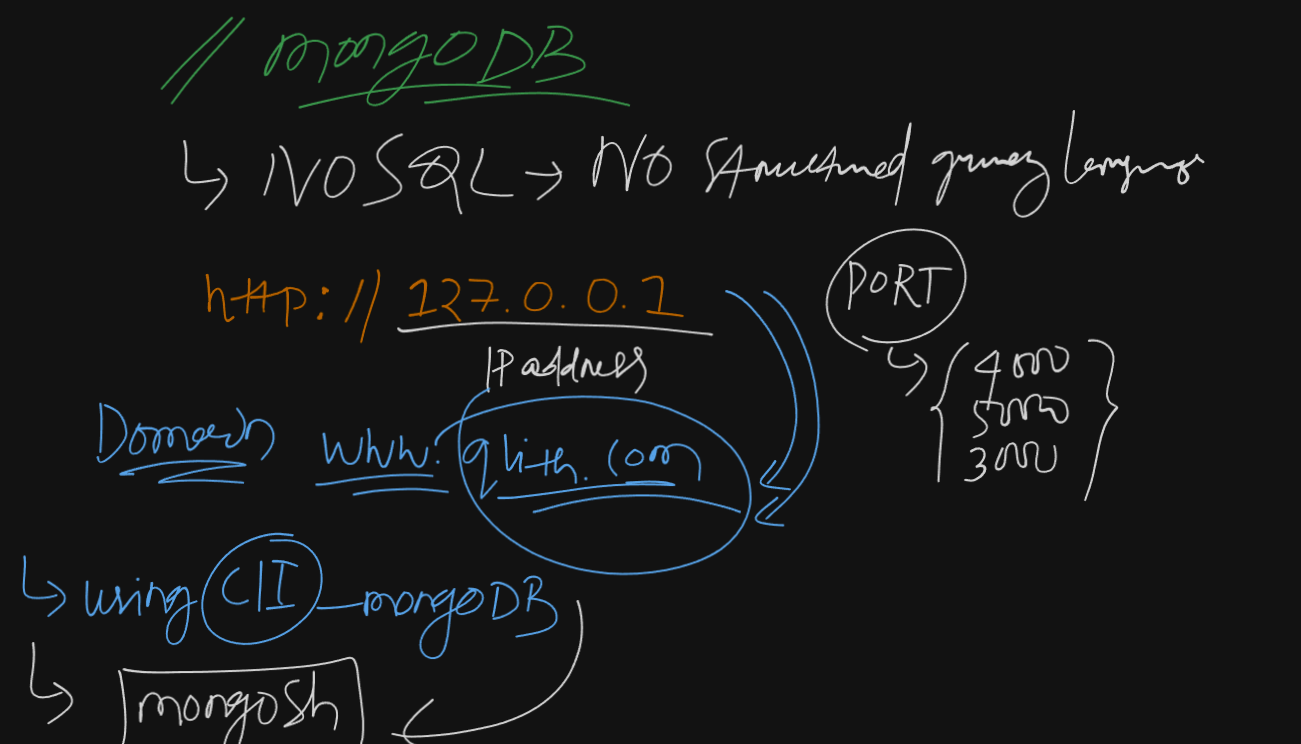 // mongoDB
↳ NOSQL → NO Structured query language
http://127.0.0.1
IP address
PORT
↳ { 4000
5000
3000 }
Domain www.qlith.com
↳ using CLI - mongoDB
↳ mongosh